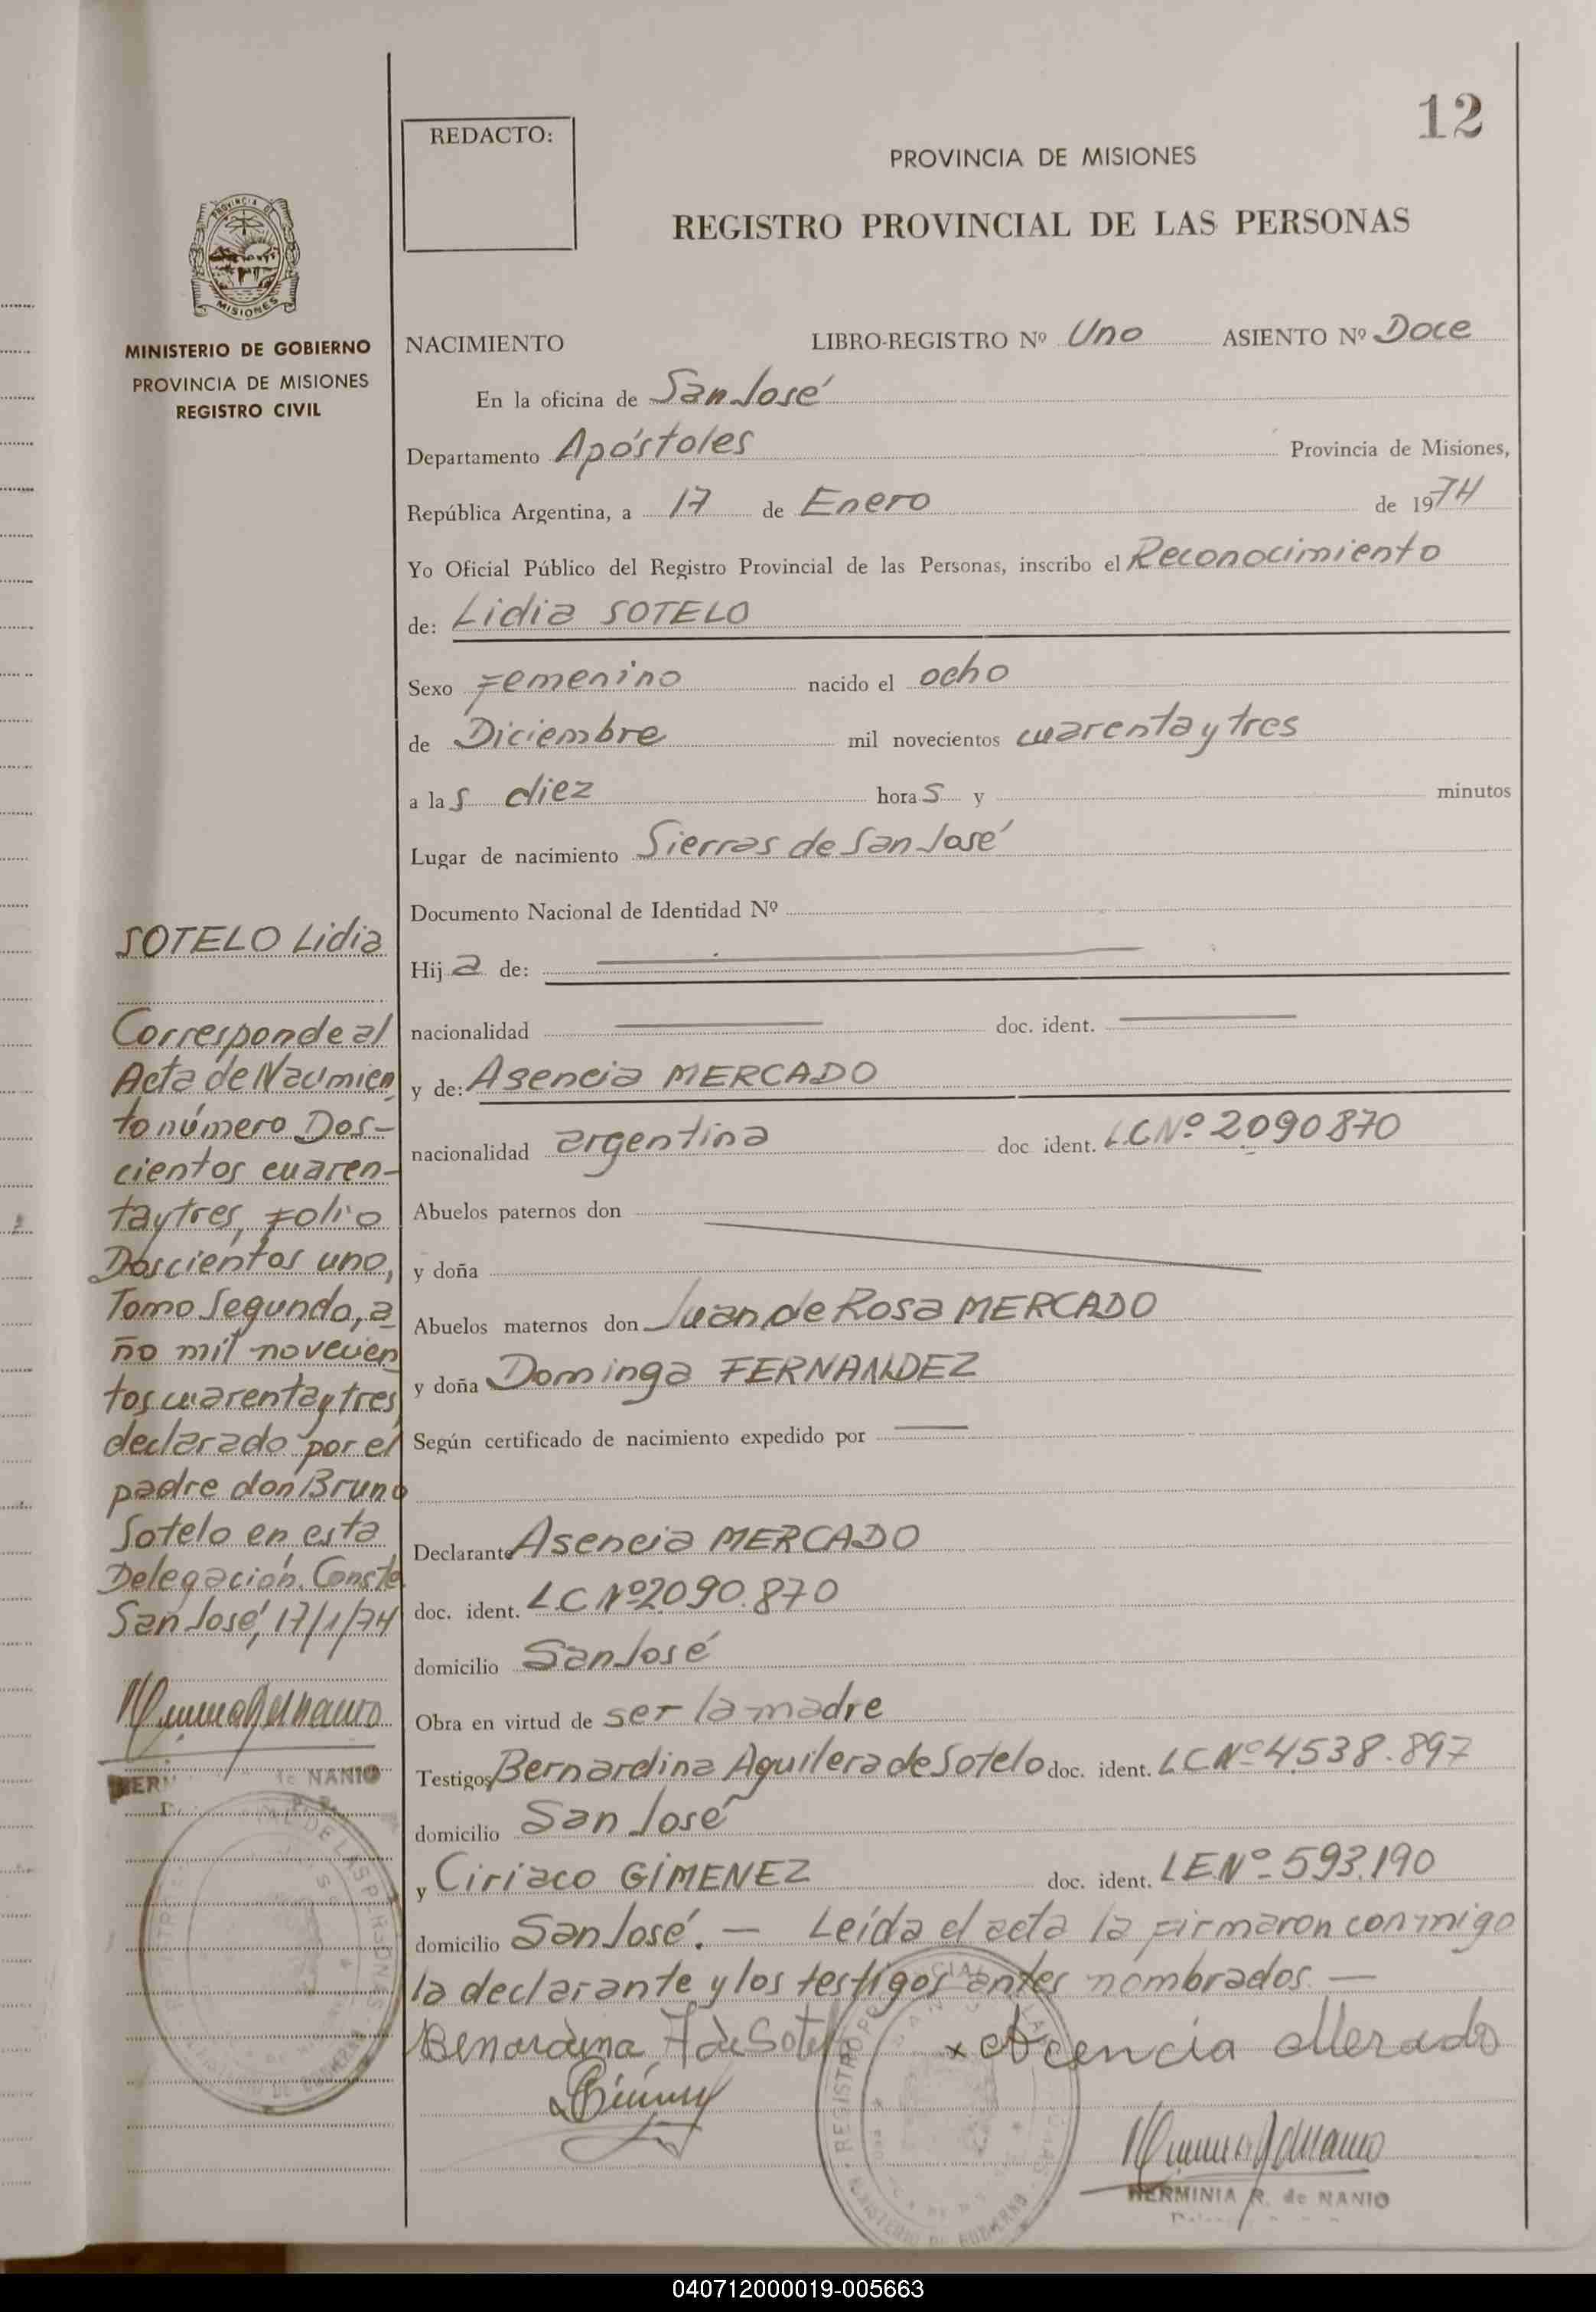 12
REDACTO:
PROVINCIA DE MISIONES
REGISTRO PROVINCIAL DE LAS PERSONAS
PROVINCIA DE
MISIONES
MINISTERIO DE GOBIERNO
PROVINCIA DE MISIONES
REGISTRO CIVIL
NACIMIENTO LIBRO-REGISTRO Nº Uno ASIENTO Nº Doce
En la oficina de San José
Departamento Apóstoles Provincia de Misiones,
República Argentina, a 17 de Enero de 1974
Yo Oficial Público del Registro Provincial de las Personas, inscribo el Reconocimiento
de: Lidia SOTELO
Sexo Femenino nacido el ocho
de Diciembre mil novecientos cuarenta y tres
a las diez horas y minutos
Lugar de nacimiento Sierras de San José
Documento Nacional de Identidad Nº
Hija de:
nacionalidad doc. ident.
y de: Asencia MERCADO
nacionalidad argentina doc ident. LC Nº 2090870
Abuelos paternos don
y doña
Abuelos maternos don Juan de Rosa MERCADO
y doña Dominga FERNANDEZ
Según certificado de nacimiento expedido por
Declarante Asencia MERCADO
doc. ident. L.C Nº 2.090.870
domicilio San José
Obra en virtud de ser la madre
Testigos Bernardina Aguilera de Sotelo doc. ident. LC Nº 4.538.897
domicilio San José
y Ciriaco GIMENEZ doc. ident. LE Nº 593.190
domicilio San José. — Leída el acta la firmaron conmigo
la declarante y los testigos antes nombrados —
Benardina A de Sotelo x Acencia Mercado
HERMINIA R. de NANIO
SOTELO Lidia
Corresponde al
Acta de Nacimien
to número Dos-
cientos cuaren-
ta y tres, folio
Doscientos uno,
Tomo Segundo, a
ño mil novecien
tos cuarenta y tres
declarado por el
padre don Bruno
Sotelo en esta
Delegación. Conste
San José, 17/1/74
de NANIO
040712000019-005663